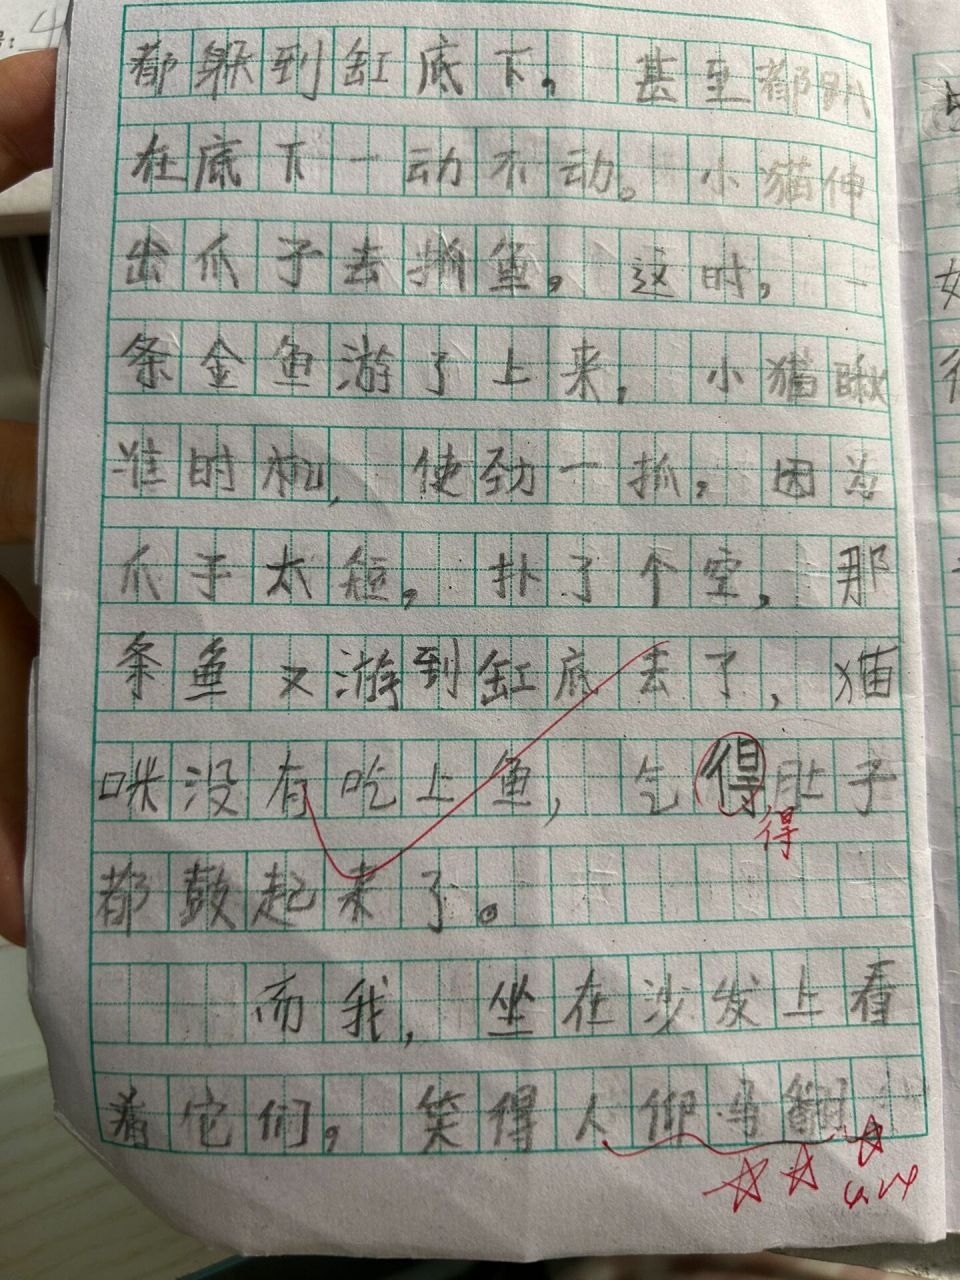 都躲到缸底下，甚至都趴
在底下一动不动。小猫伸
出爪子去抓鱼。这时，一
条金鱼游了上来，小猫瞅
准时机，使劲一抓，因为
爪子太短，扑了个空，那
条鱼又游到缸底去了，猫
咪没有吃上鱼，气得肚子
得
都鼓起来了。
而我，坐在沙发上看
着它们，笑得人仰马翻